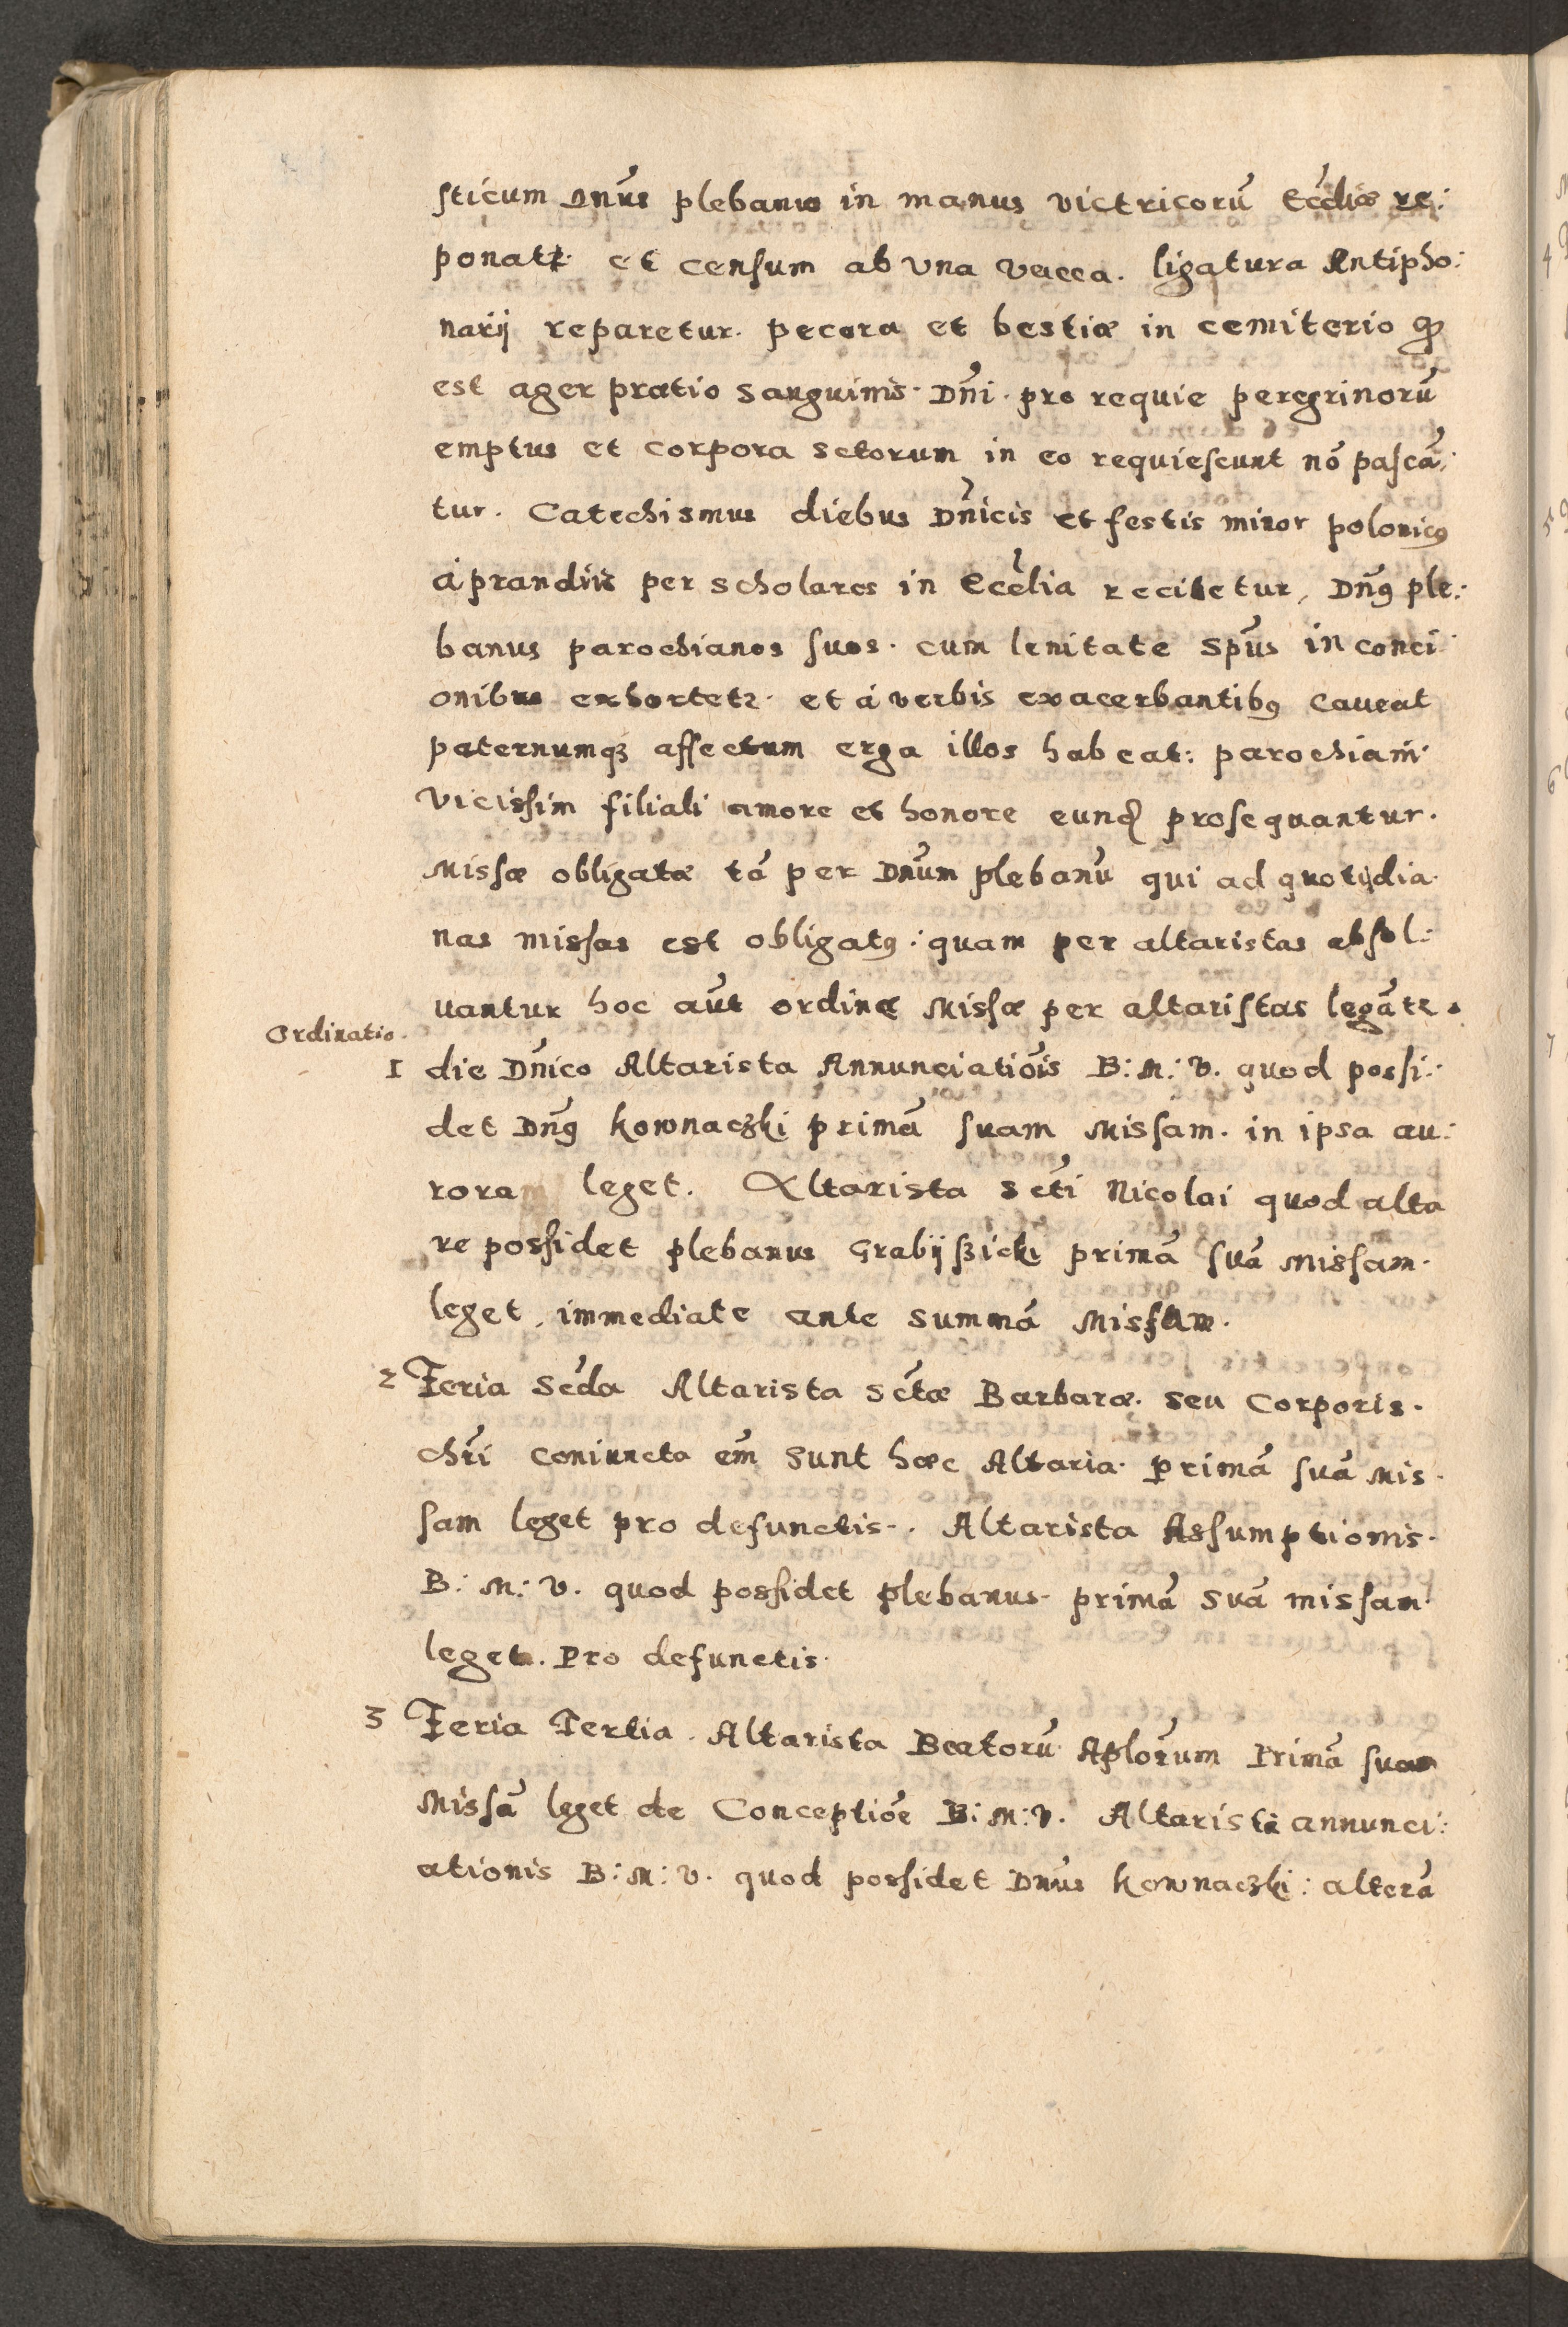 sticum Dnūs plebanus in manus victricorū Eccliæ re:
ponatr et censum ab vna vacca. ligatura Antipho:
narij reparetur. pecora et bestiæ in cemiterio qd
est ager prætio sanguinis. Dñi. pro requie peregrinorū
emptus et corpora sctorum in eo requiescunt nō pascā:
tur. Catechismus diebus Dñicis et festis minor polonicꝰ
à prandiis per scholares in Ecclia recitetur, Dñꝰ ple:
banus parochianos suos. cum lenitate spūs in conci:
onibus exhortetr. et à verbis exacerbantibꝰ caveat
paternumqꝫ affectum erga illos habeat: parochiani
vicissim filiali amore et honore eund prosequantur.
Missæ obligatæ tā per Dnūm plebanū qui ad quotidia:
nas missas est obligatꝰ: quam per altaristas absol:
uantur hoc aūt ordine Missæ per altaristas legātr.
Ordinatio.
1 die Dñico Altarista Annunciatiōis B: M: V. quod possi:
det Dñꝰ Kownaczki primā suam Missam. in ipsa au:
roram leget. Altarista Scti Nicolai quod alta
re possidet plebanus Grabijszicki primā suā Missam.
leget, immediate ante summā Missam.
2 Feria Scda Altarista Sctæ Barbaræ. seu Corporis.
Chri coniuncta em̄ sunt hæc Altaria. primā suā Mis
sam leget pro defunctis. Altarista Assumptionis.
B: M: V. quod possidet plebanus. primā suā missam
leget. Pro defunctis.
3 Feria Tertia. Altarista Beatorū Aplorum Primā suam
Missā leget de Conceptiōe B: M: V. Altarista annunci:
ationis B: M: V. quod possidet Dnūs Kownaczki: alterā